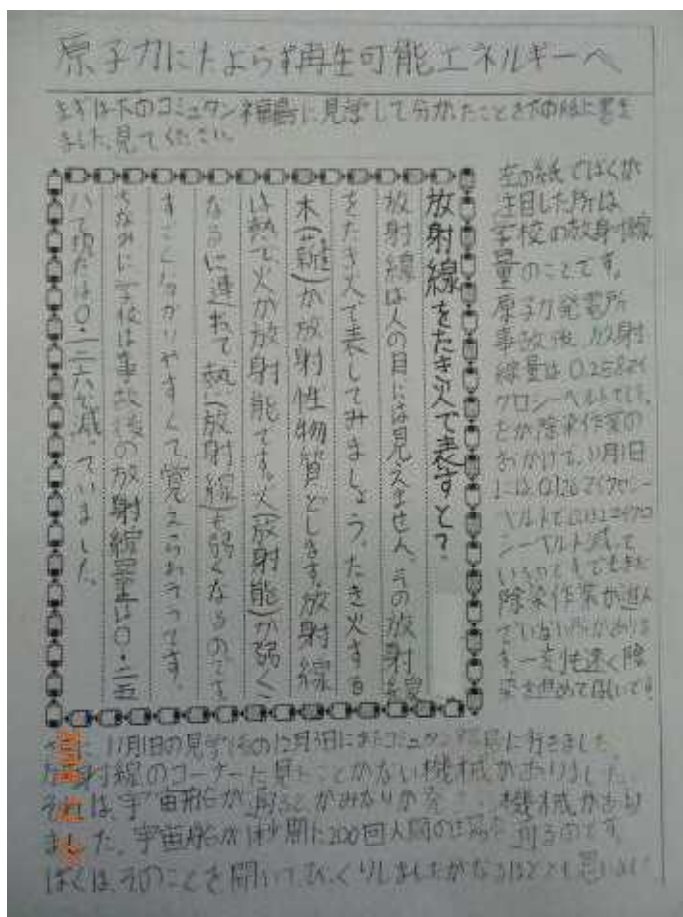 原子力にたよらず再生可能エネルギーへ
まずは下のコミュタン福島に見学して分かったことを下の紙に書き
ました。見てください。
放射線をたき火で表すと？
放射線は人の目には見えません。その放射線
をたき火で表してみましょう。たき火する
木（薪）が放射性物質とします。放射線
は熱で火が放射能です。火（放射能）が弱く
なるに連れて熱（放射線）も弱くなるのです。
すごく分かりやすくて覚えられそうです。
ちなみに学校は事故後の放射線量は〇・二五
八で現在は〇・一二六で減っていました。
左の紙でぼくが
注目した所は
学校の放射線
量のことです。
原子力発電所
事故後、放射
線量は0.258マイ
クロシーベルトでした。
除染作業の
おかげで、11月1日
には0.126マイクロシー
ベルトで0.132マイクロ
シーベルト減って
いるのです。でもまだ
除染作業が進ん
でいない所があり
ます。一刻も速く除
染を進めてほしいです。
11月1日の見学後の12月3日にまたコミュタン福島に行きました。
放射線のコーナーに見たことがない機械がありました。
それは、宇宙船が通るとかみなりが 機械があり
ました。宇宙船が1秒間に200回人間の
ぼくは、そのことを聞いて、びっくりしましたがなるほどとも思いまし